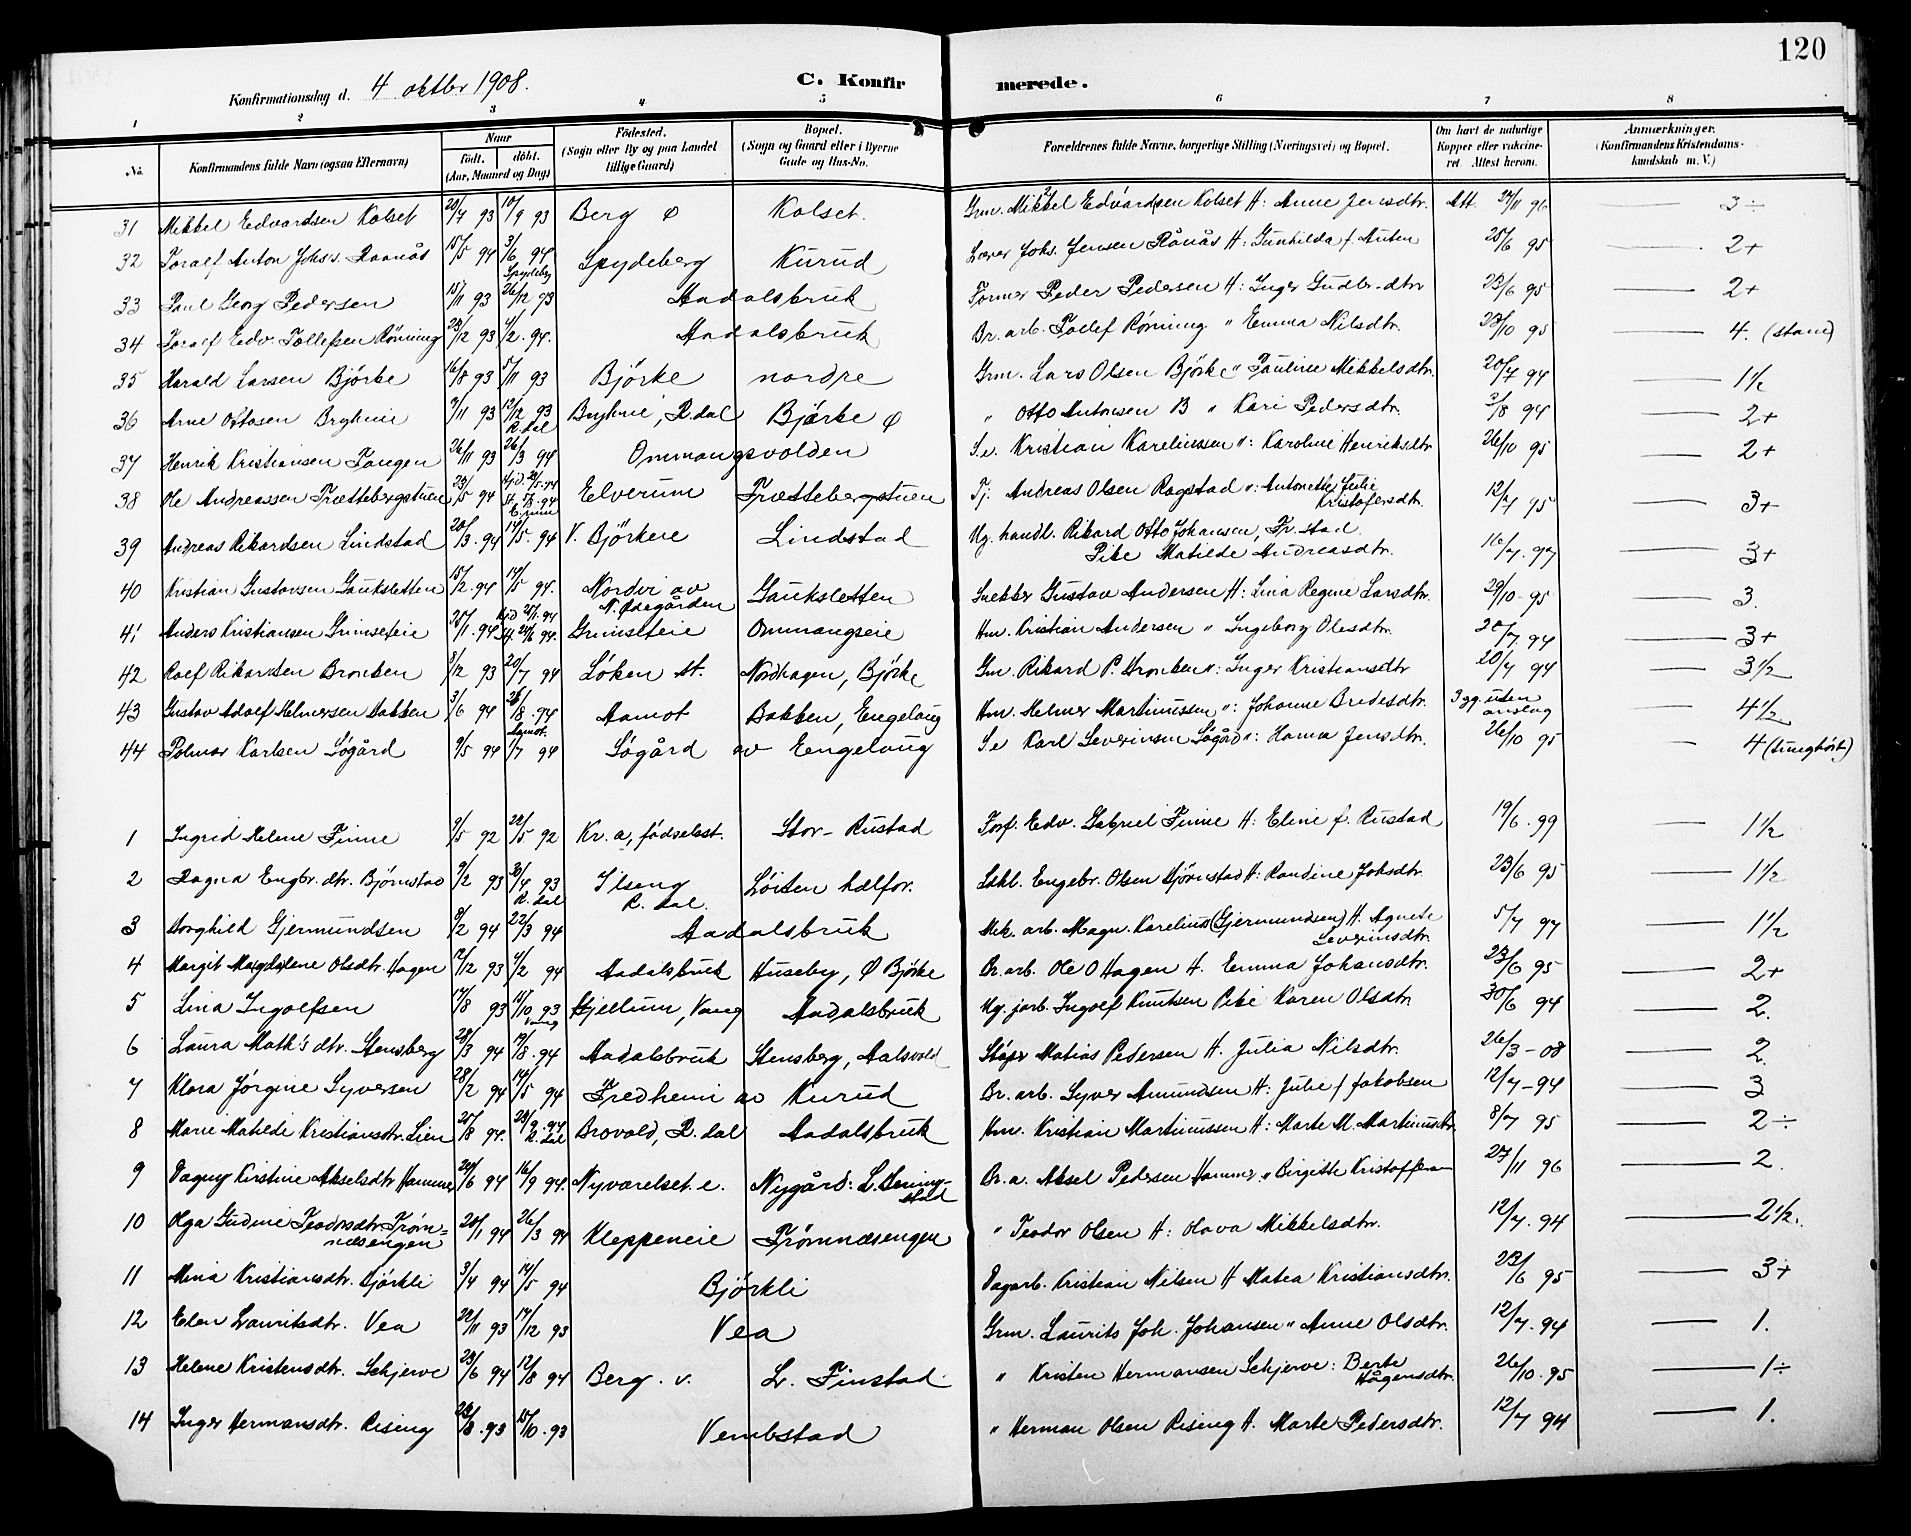 120
Konfirmationsdag d. 4 oktbr 1908. C. Konfirmerede.
1 2 3 4 5 6 7 8
No. Konfirmandens fulde Navn (ogsaa Efternavn) Naar født. døbt. (Aar, Maaned og Dag) Fødested. (Sogn eller By og paa Landet tillige Gaard) Bopæl. (Sogn og Gaard eller i Byerne Gade og Hus-No. Forældrenes fulde Navne, borgerlige Stilling (Næringsvei) og Bopæl. Om havt de naturlige Kopper eller vaccineret. Attest herom. Anmærkninger. (Konfirmandens Kristendomskundskab m. V.)
31 Mikkel Edvardsen Kolset 20/7 93 10/9 93 Berg ø Kolset. Grm. Mikkel Edvardsen Kolset H: Anne Jensdtr. Att. 27/11 96 3 ÷
32 Toralf Anton Johs's. Raanås 15/5 94 3/6 94 Spydeberg Spydeberg Kurud Lærer Johs. Jensen Rånås H: Gunhilda f. Auten 25/6 95 2+
33 Paul Georg Pedersen 15/11 93 26/12 93 Aadalsbruk Former Peder Pedersen H: Inger Gudbr-dtr 23/6 95 2+
34 Toralf Edv. Tollefsen Rönning 23/12 93 4/2. 94. Aadalsbruk Br. arb. Tollef Rönning " Emma Nilsdtr. 23/10 95 4. (stam)
35 Harald Larsen Björke 16/8 93 5/11 93 Björke nordre Grm. Lars Olsen Björke " Pauline Mikkelsdtr. 20/7 94 1 1/2
36 Arne Ottosen Bryhnie 7/11 93 12/12 93 R.dal Bryhnie, R.dal Björke ø " Otto Antonsen B " Kari Pedersdtr. 3/8 94 2+
37 Henrik Kristiansen Tangen 26/11 93 26/3 94 Ommangsvolden S.e. Kristian Karelinssen ": Karoline Henriksdtr 26/10 95 2+
38 Ole Andreassen Trættebergstuen 23/5 94 Elverum Trættebergstuen Tj. Andreas Olsen Rogstad ": Antonette Julie Kristofersdtr. 12/7 95 3+
39 Andreas Rikardsen Lindstad 20/3. 94 14/5. 94 V. Björkeie Lindstad Ug. handl. Rikard Otto Johansen, Fr.stad
Pike Matilde Andreasdtr. 16/7. 97 3+
40 Kristian Gustavsen Gaukstetten 15/2. 94 14/5 94. Nordvi av N. Ødegården Gaukstetten Snekker Gustav Andersen H: Lina Regine Larsdtr. 29/10 - 95 3.
41 Anders Kristiansen Grimseteie 25/1. 94 Grimseteie Ommangseie Hm. Kristian Andersen " Ingeborg Olesdtr. 20/7 94 3+
42 Rolf Rikardsen Bronken 8/12 93 20/7 94 Löken st. Nordhagen, Björke Gm. Rikard P. Bronken ": Inger Kristiansdtr 20/7 94 3 1/2
43 Gustav Adolf Helmersen Bakken 3/6 94 26/8. 94 Aamot. Aamot Bakken, Engelaug Hm. Helmer Martinussen ": Johanne Bredesdtr. 3 gg. uten anslag 4 1/2
44 Polmar Karlsen Sögård 9/5 94 1/7 94 Sögård av Eengelaug S.e Karl Severinsen Sögård ": Hanna Jensdtr. 26/10 95 4 (tunghört)
1 Ingrid Helene Finne 9/5 92 22/5 92 Kr.a, fødselsst. Stor-Rustad Forf. Edv. Gabriel Finne H: Eline f. Rustad 19/6. 99 1 1/2
2 Ragna Engbr.dtr. Björnstad 9/2 93 30/4 93 R.dal Ilseng R.dal. Löiten hælfor. Engebr. Olsen Björnstad H: Randine Johsdtr. 23/6 95 1 1/2
3 Borghild Gjermundsen 9/2 94 22/3 94 Aadalsbruk Mek. arb. Magn. Karelius (Gjermundsen) H. Agnete Severinsdtr. 5/7 97 1 1/2
4 Margit Magdalene Olsdtr. Hagen 12/12 93 4/2 94 Aadalsbruk Huseby, Ø Björke Br. arb. Ole O Hagen H. Emma Johansdtr. 23/6 95 2+
5 Lina Ingolfsen 17/8 93 11/10 93 Vang Hjellum, Vang Aadalsbruk Ug. jarb. Ingolf Knutsen Pike Karen Olsdtr 30/6 94 2.
6 Laura Math's dtr. Stensberg 28/3 94 19/8. 94 Aadalsbruk Stensberg, Aalsvold Støper Matias Pedersen H. Julia Nilsdtr. 26/3 - 08 2.
7 Klara Jörgine Syversen 28/2 94 14/5 94 Fredheim av Kurud Br. arb. Syver Amundsen H: Julie f Jakobsen 12/7 - 94 3
8 Marie Matilde Kristiansdtr. Lien 25/8 94. 23/9. 94 R.dal Brovold, R.dal Aadalsbruk Hm. Kristian Martinussen H: Marte M. Martinusdtr. 8/7 95 2 ÷
9 Dagny Kirstine Akselsdtr Hammer 20/6 94 16/9 94. Nyvarelset. e. Nygård: L. Benningstad Br. a. Aksel Pedersen Hammer " Birgitte Kristoffersen 27/11 96 2.
10 Olga Gudine Teodorsdtr. Trömnæsengen 20/1 94 26/3 94 Kleppeneie Trömnæsengen " Teodor Olsen H: Olava Mikkelsdtr. 12/7. 94 2 1/2.
11 Mina Kristiansdtr. Björkli 3/4 94 14/5 94 Björkli Dagarb. Kristian Nilsen H Matea Kristiansdtr. 23/6 95 3+
12 Elen Lauritsdtr. Vea 22/11 93 17/12 93 Vea Grm. Laurits Joh. Johansen " Anne Olsdtr. 12/7. 94 1.
13 Helene Kristensdtr. Schjerve 23/6 94 12/8 94 Berg. v. L. Finstad " Kristen Hermansen Schjerve: Berte Hågensdtr. 26/10. 95 1 ÷
14 Inger Hermansdtr. Rising 23/8. 93 15/10. 93 Vembstad " Herman Olsen Rising H. Marte Pedersdtr. 12/7 94 1.